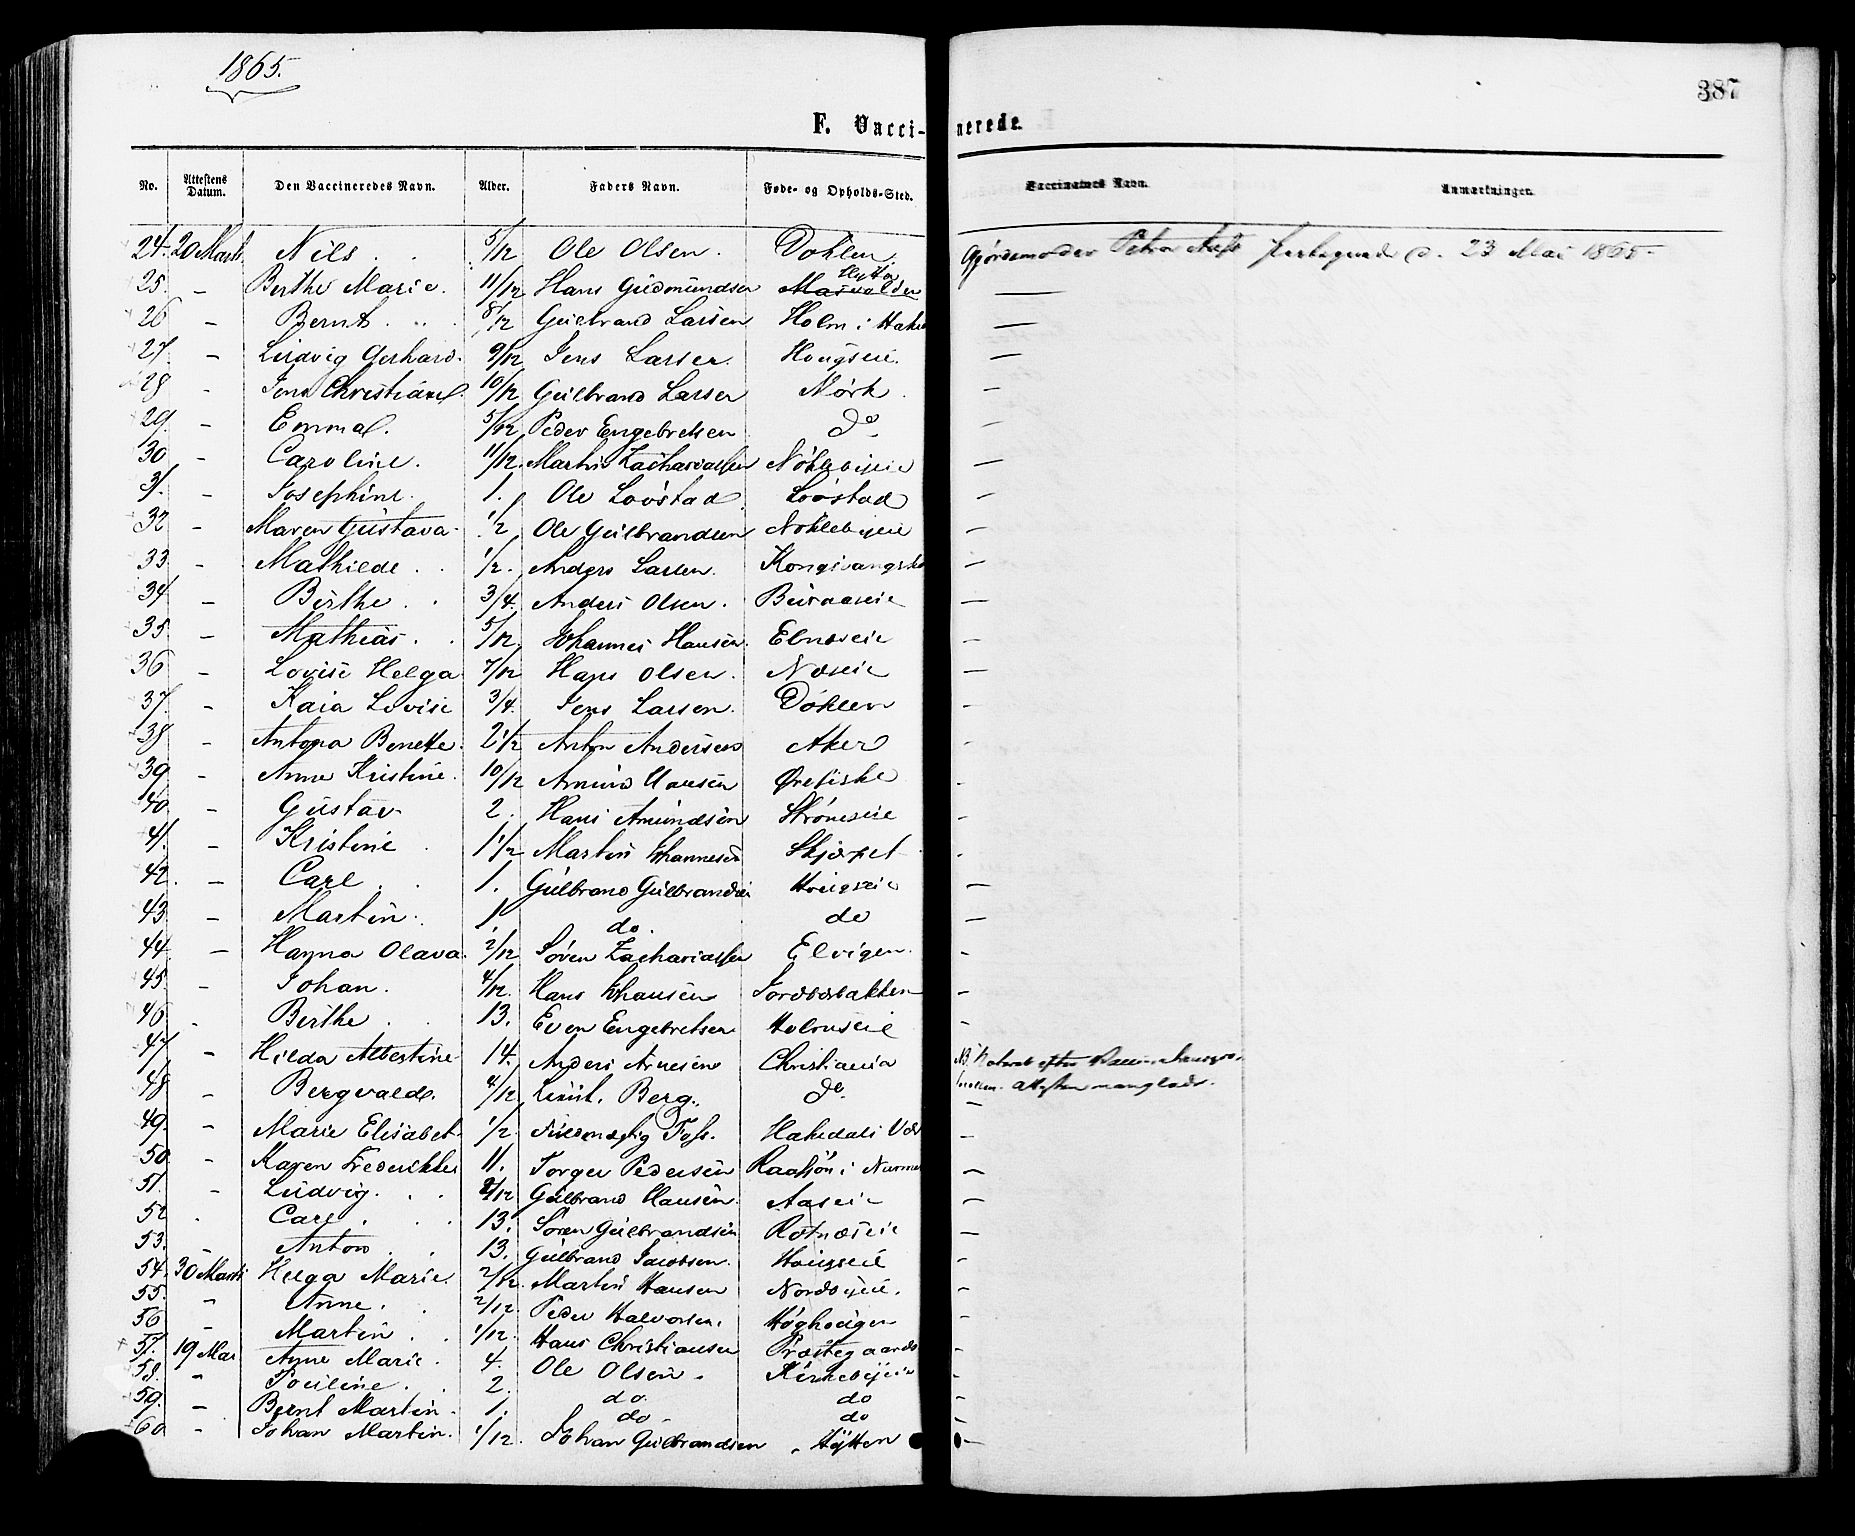 1865.
387
F. Vacci-nerede.
No. Attestens Datum. Den Vaccineredes Navn. Alder. Faders Navn. Føde- og Opholds-Sted. Vaccinateurs Navn. Anmærkninger.
24. 20 Marts Nils 5/12 Ole Olsen. Døhlen. Gjordemoder Petra d. 23 Mai 1865
25. - Berthe Marie. 11/12 Hans Gudmundsen Hytta —
26 - Bernt 8/12 Gulbrand Larsen Holm i —
27. - Ludvig Gerhard. 9/12 Jens Larsen. Hougseie. —
28 - Jens Christian 10/12 Gulbrand Larsen Mørk. —
29. - Emma 5/12 Peder Engebretsen do —
30 - Caroline. 11/12. Martin Zachariassen Nøklebyeie —
31. - Josephine. 1. Ole Lovstad Lovstad —
32 - Maren Gustava 1/2 Ole Gulbrandsen Nøklebyeie —
33 - Mathilde 1/2. Anders Larsen. —
34 - Berthe 3/4. Anders Olsen. Buraaseie —
35. - Mathias 5/12 Johannes Hansen. Elnæseie —
36 - Lovise Helga 7/12 Hans Olsen. Næseie —
37. - Kaia Lovise 3/4. Jens Larsen. Døhlen -
38 - Antona Benette. 2 1/2 Anton Andersen Aker -
39 - Anne Kristine. 10/12 Amund Hansen Ørefiske -
40. - Gustav 2. Hans Amundsen Strømseie -
41. - Kristine 1 1/2 Martin Johannesen Skjæret -
42. - Carl 1. Gulbrand Gulbrandsen Hougseie —
43 - Martin. 1 do. do —
44. - Hanna Olava 2/12 Søren Zachariassen Elvigen. -
45 - Johan. 4/12. Hans Johansen -
46 - Berthe 13. Even Engebretsen Holmseie -
47 - Hilda Albertine 14. Anders Arnesen Christiania NB. Noteret efter
48 - Bergvald. 4/12 Berg. do. attesten manglede. —
49. - Marie Elisabet. 1/2 Foss. Hakedals —
50. - Karen Frederikke 11. Torger Pedersen i —
51. - Ludvig. 8/12 Gulbrand Hansen. Aaseie —
52 - Carl 13. Søren Gulbrandsen Rotnæseie -
53. - Anton 13. Gulbrand Jacobsen. Hougseie -
54. 30 Marts Helga Marie. 2/12 Martin Hansen Nordbyeie. -
55. - Anne. 2/12. Peder Halvorsen. Høghougen -
56 - Martin 1/12. Hans Christiansen -
57. 19 Mai Anne Marie. 4. Ole Olsen -
58. - Pouline. 2. do. do -
59. - Bernt Martin 1. do do -
60 - Johan Martin. 1/12. Johan Gulbrandsen Hytten —